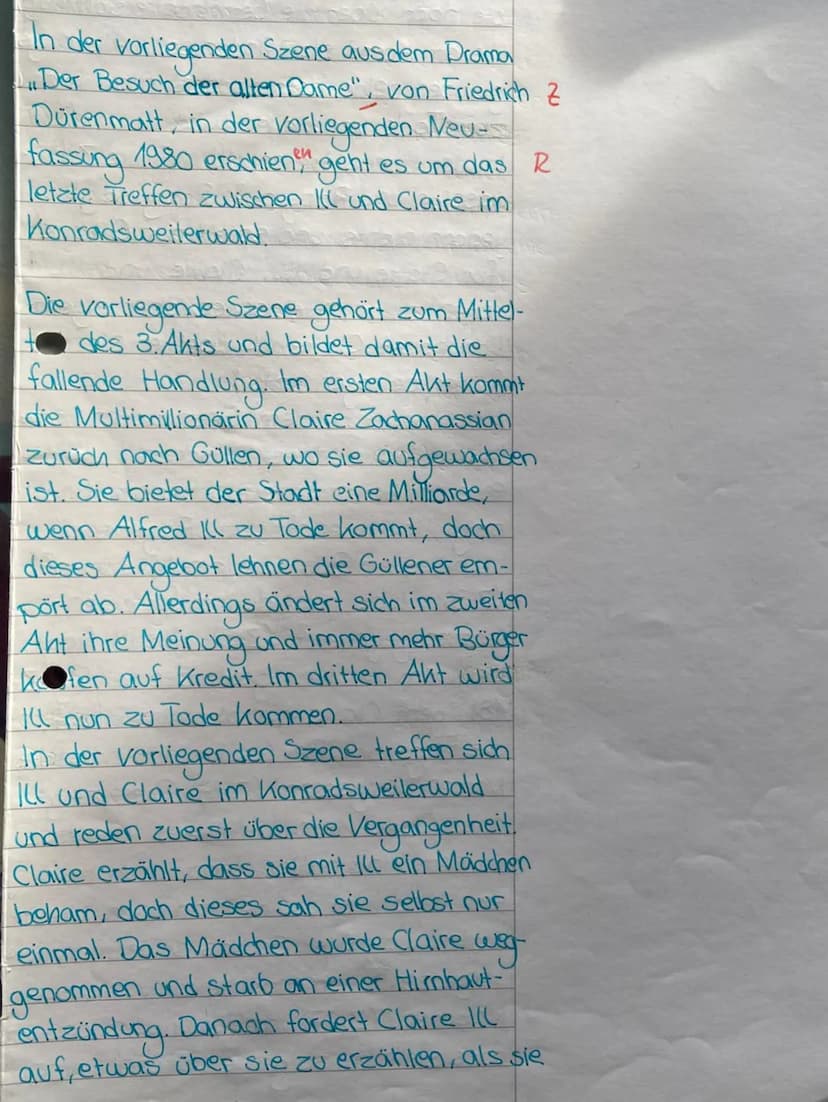 In der vorliegenden Szene aus dem Drama
„Der Besuch der alten Dame", von Friedrich Z
Dürenmatt, in der vorliegenden Neu-
fassung 1980 erschienen, geht es um das R
letzte Treffen zwischen Ill und Claire im
Konradsweilerwald.
Die vorliegende Szene gehört zum Mittel-
t des 3. Akts und bildet damit die
fallende Handlung. Im ersten Akt kommt
die Multimillionärin Claire Zachanassian
zurück nach Güllen, wo sie aufgewachsen
ist. Sie bietet der Stadt eine Milliarde,
wenn Alfred Ill zu Tode kommt, doch
dieses Angebot lehnen die Güllener em-
pört ab. Allerdings ändert sich im zweiten
Akt ihre Meinung und immer mehr Bürger
k fen auf Kredit. Im dritten Akt wird
Ill nun zu Tode kommen.
In der vorliegenden Szene treffen sich
Ill und Claire im Konradsweilerwald
und reden zuerst über die Vergangenheit.
Claire erzählt, dass sie mit Ill ein Mädchen
bekam, doch dieses sah sie selbst nur
einmal. Das Mädchen wurde Claire weg-
genommen und starb an einer Hirnhaut-
entzündung. Danach fordert Claire Ill
auf, etwas über sie zu erzählen, als sie